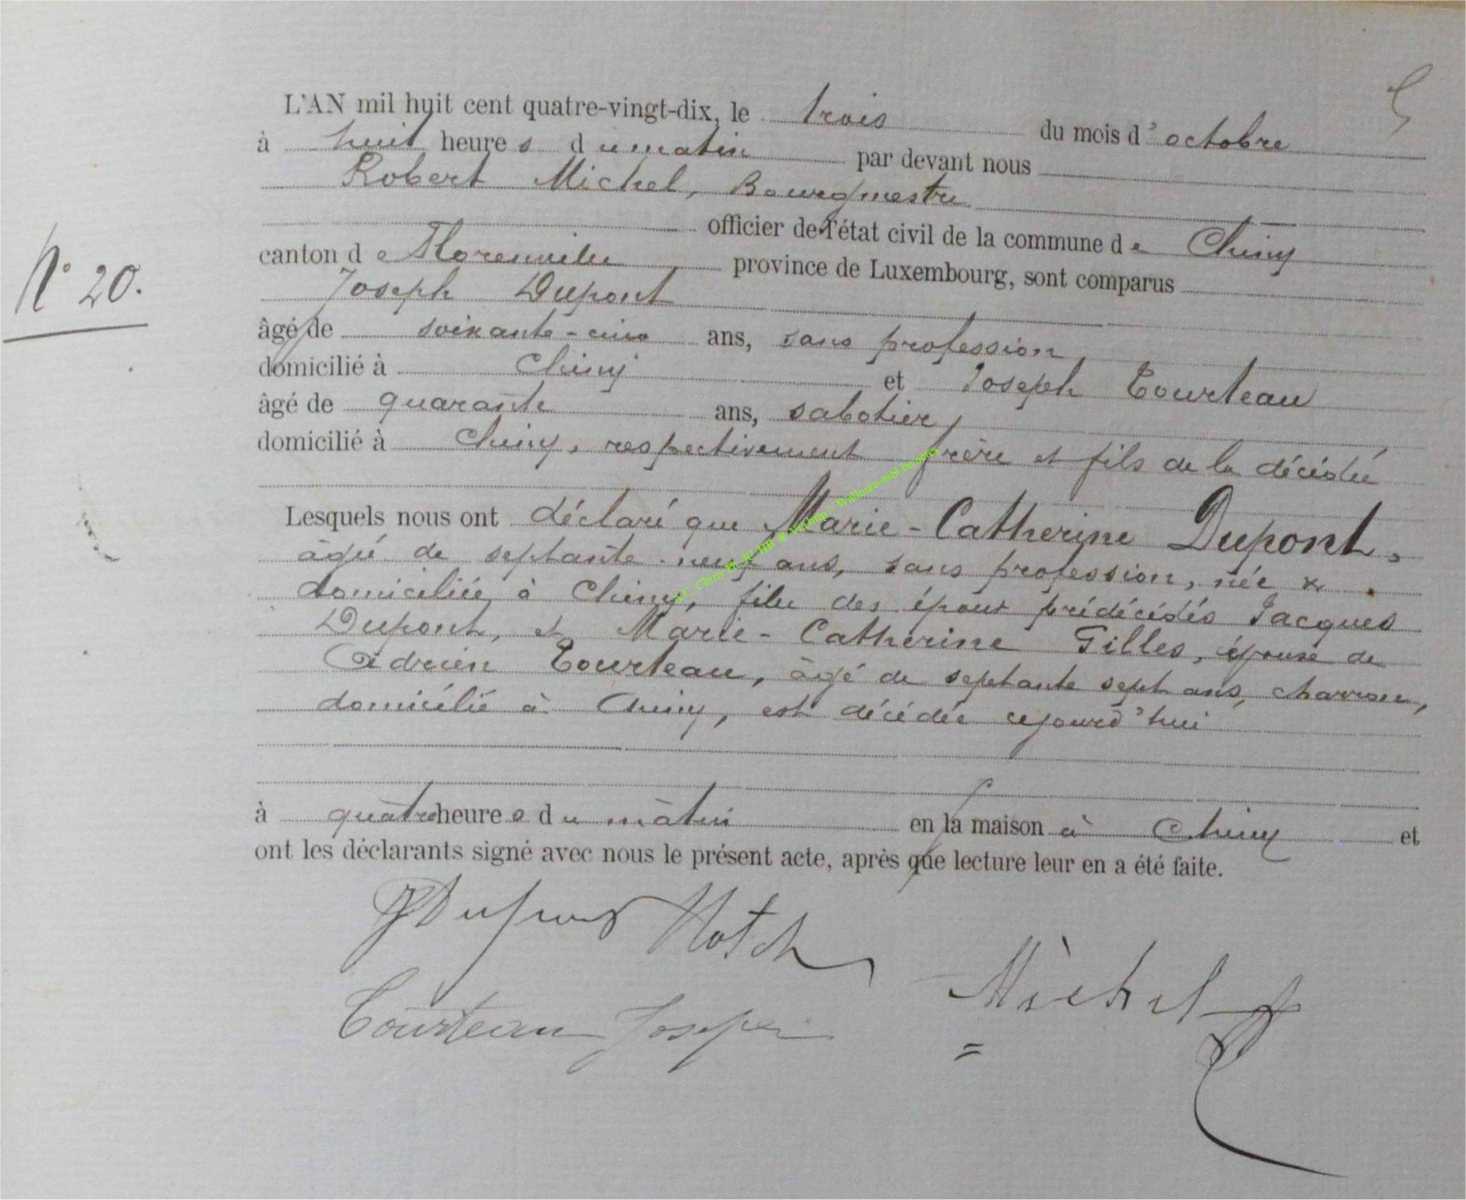 L'AN mil huit cent quatre-vingt-dix, le trois du mois d'octobre
à huit heures du matin par devant nous
Robert Michel, Bourgmestre
officier de l'état civil de la commune de Chiny
N° 20.
canton de Florenville province de Luxembourg, sont comparus
Joseph Dupont
âgé de soixante-cinq ans, sans profession
domicilié à Chiny et Joseph Tourteau
âgé de quarante ans, sabotier
domicilié à Chiny, respectivement frère et fils de la décédée
Lesquels nous ont déclaré que Marie-Catherine Dupont,
âgée de septante-neuf ans, sans profession, née &
domiciliée à Chiny, fille des époux prédécédés Jacques
Dupont, et Marie-Catherine Gilles, épouse de
Adrien Tourteau, âgé de septante sept ans, charron,
domicilié à Chiny, est décédée cejourd'hui
à quatre heures du matin en la maison à Chiny et
ont les déclarants signé avec nous le présent acte, après que lecture leur en a été faite.
JDupont
Michel
Tourteau Joseph